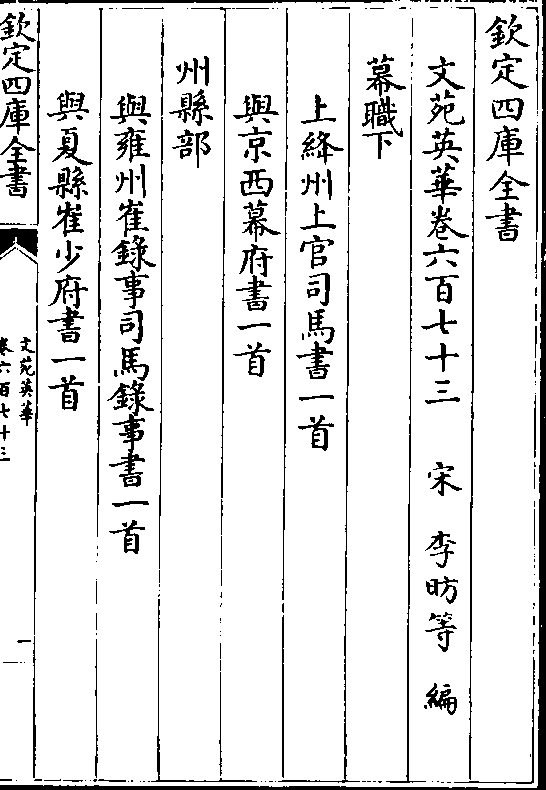 欽定四庫全書
文苑英華卷六百七十三　宋　李昉等　編
幕職下
上絳州上官司馬書一首
與京西幕府書一首
州縣部
與雍州崔錄事司馬錄事書一首
與夏縣崔少府書一首
欽定四庫全書
文苑英華
卷六百七十三
一